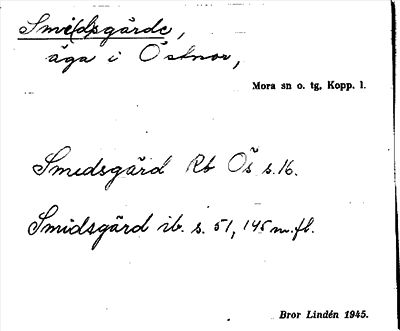 Smi(d)sgårde,
äga i Östnor,
Mora sn o. tg, Kopp. l.
Smedsgård Rb Ös s. 16.
Smidsgärd ib. s. 51, 145 m. fl.
Bror Lindén 1945.